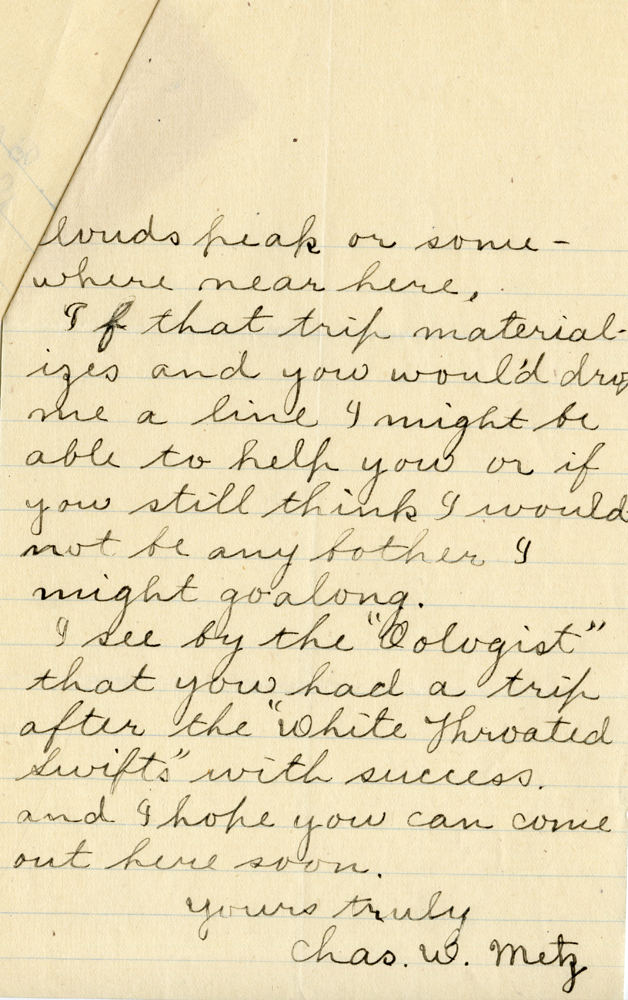 louds peak or some-
where near here,
If that trip material-
izes and you would drop
me a line I might be
able to help you or if
you still think I would
not be any bother I
might go along.
I see by the "Oologist"
that you had a trip
after the "White Throated
Swifts" with success.
and I hope you can come
out here soon.
yours truly
Chas. W. Metz